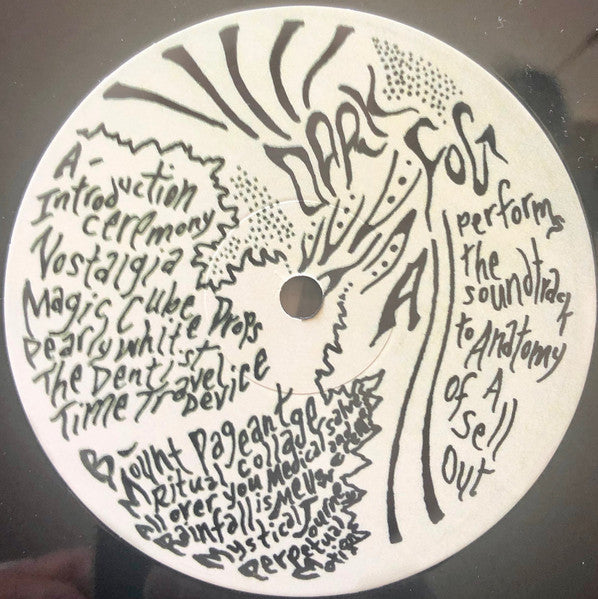 DARK
FOG
performs
the
soundtrack
to Anatomy
of A
Sell
Out
A-
Introduction
ceremony
Nostalgia
Magic Cube Drops
Pearly white
The Dentist
Time Travel ice
Device
B
Mount Pageant
Ritual Collage
All over you Medical
Rainfall is Mellow
Mystical Journey
Perpetual